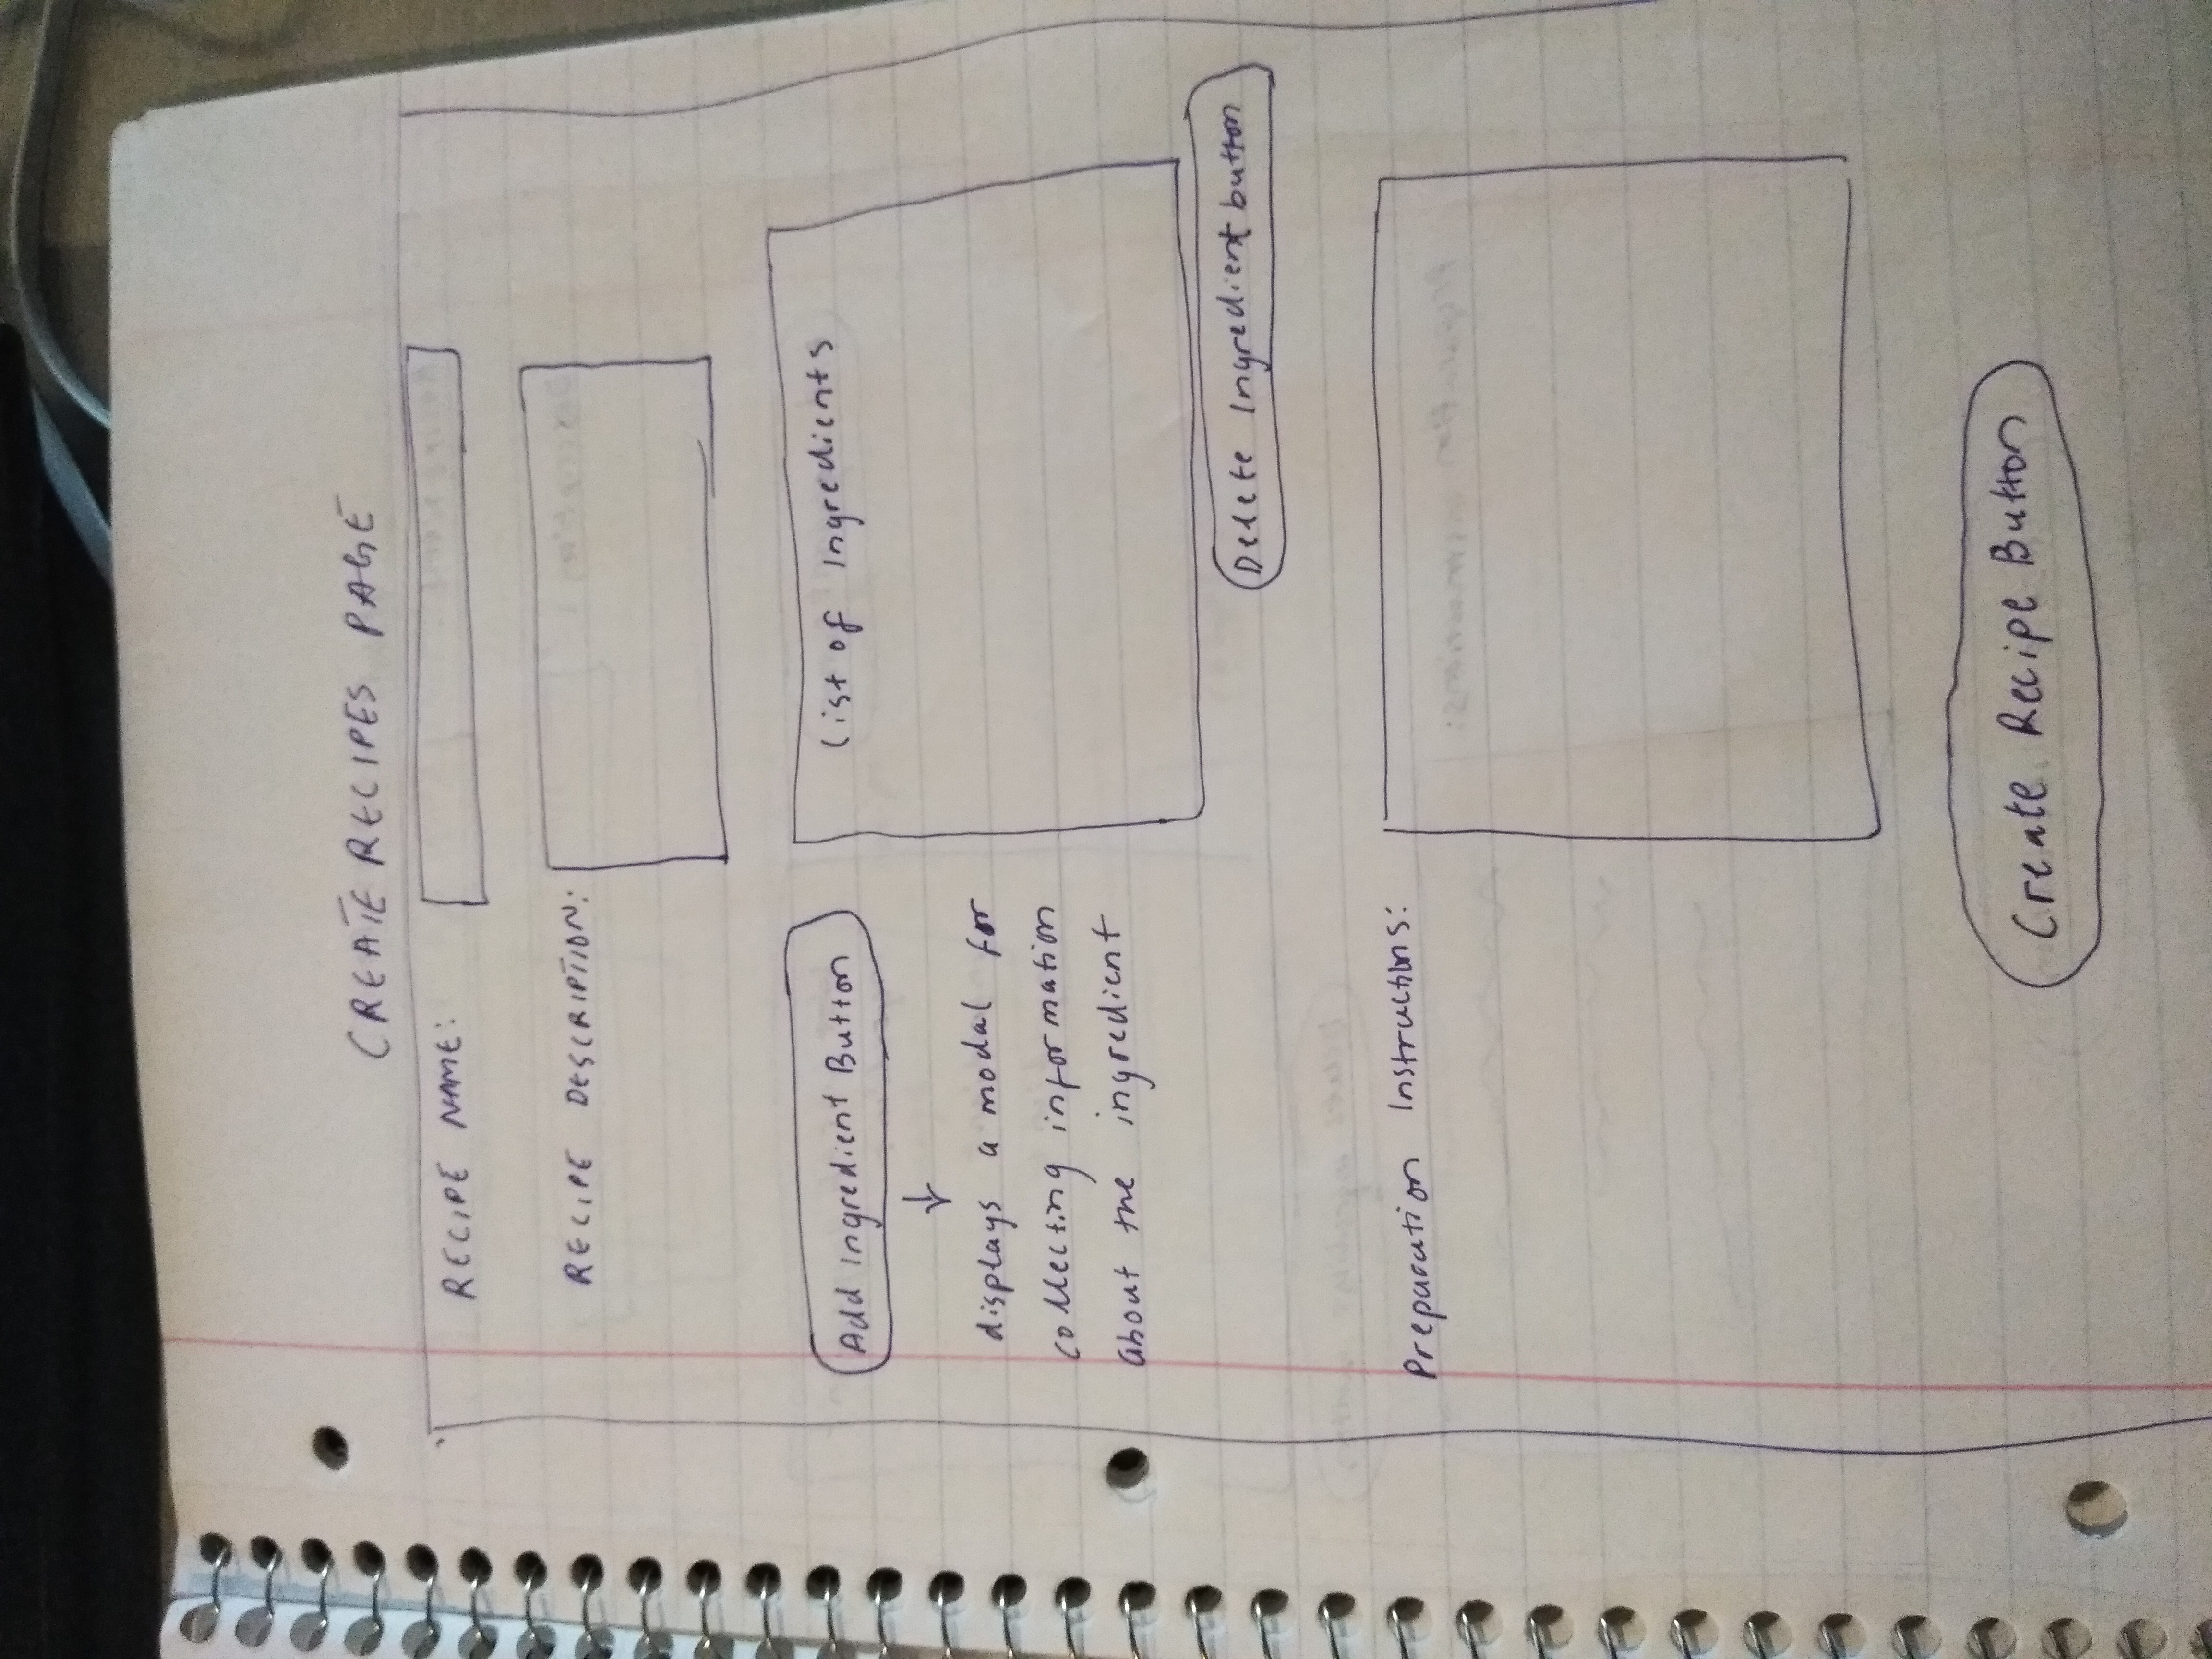 CREATE RECIPES PAGE
RECIPE NAME:
RECIPE DESCRIPTION:
Add Ingredient Button
List of Ingredients
displays a modal for
collecting information
about the ingredient
Delete Ingredient button
Preparation Instructions:
Create Recipe Button